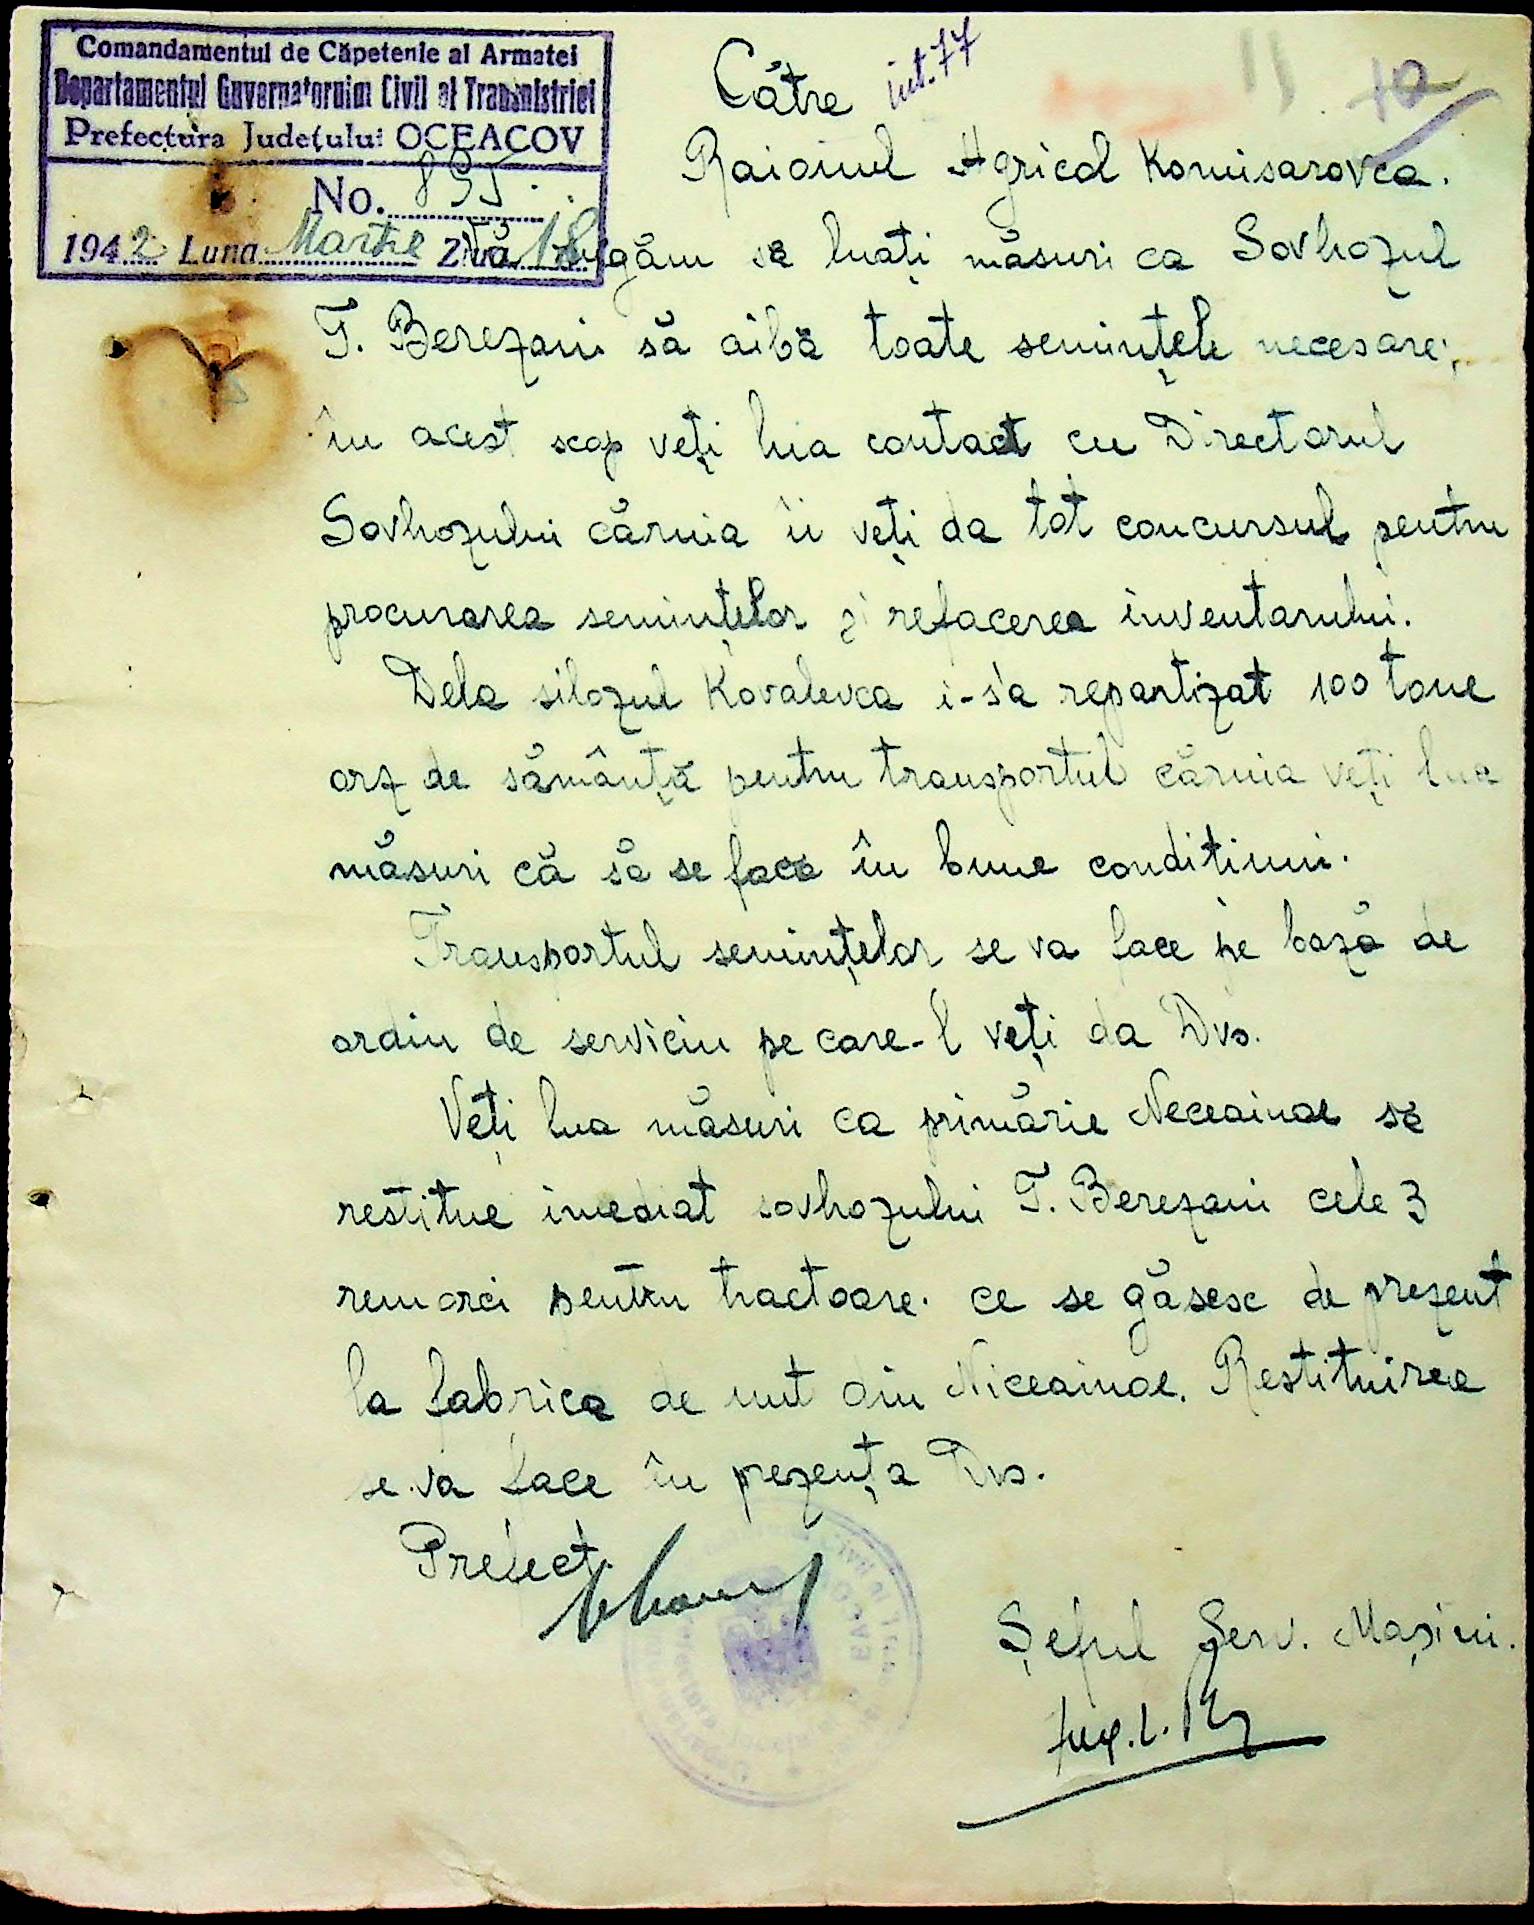 Comandamentul de Căpetenie al Armatei
Departamentul Guvernatorului Civil al Transnistriei
Prefectura Județului OCEACOV
No. 895
1942 Luna Martie Ziua 18
int. 77
Către
Raionul Agricol Komisarovca.
Vă rugăm să luați măsuri ca Sovhozul
T. Berezani să aibă toate semințele necesare;
în acest scop veți lua contact cu Directorul
Sovhozului căruia îi veți da tot concursul pentru
procurarea semințelor și refacerea inventarului.
Dela silozul Kovalevca i-s'a repartizat 100 tone
orz de sămânță pentru transportul căruia veți lua
măsuri că să se faca în bune conditiuni.
Transportul semințelor se va face pe bază de
ordin de serviciu pe care-l veți da Dvs.
Veți lua măsuri ca primărie Neceainoe să
restitue imediat sovhozului T. Berezani cele 3
remorci pentru tractoare. ce se găsesc de prezent
la fabrica de unt din Niceainoe. Restituirea
se va face în prezența Dvs.
Prefect.
Șeful Serv. Mașini.